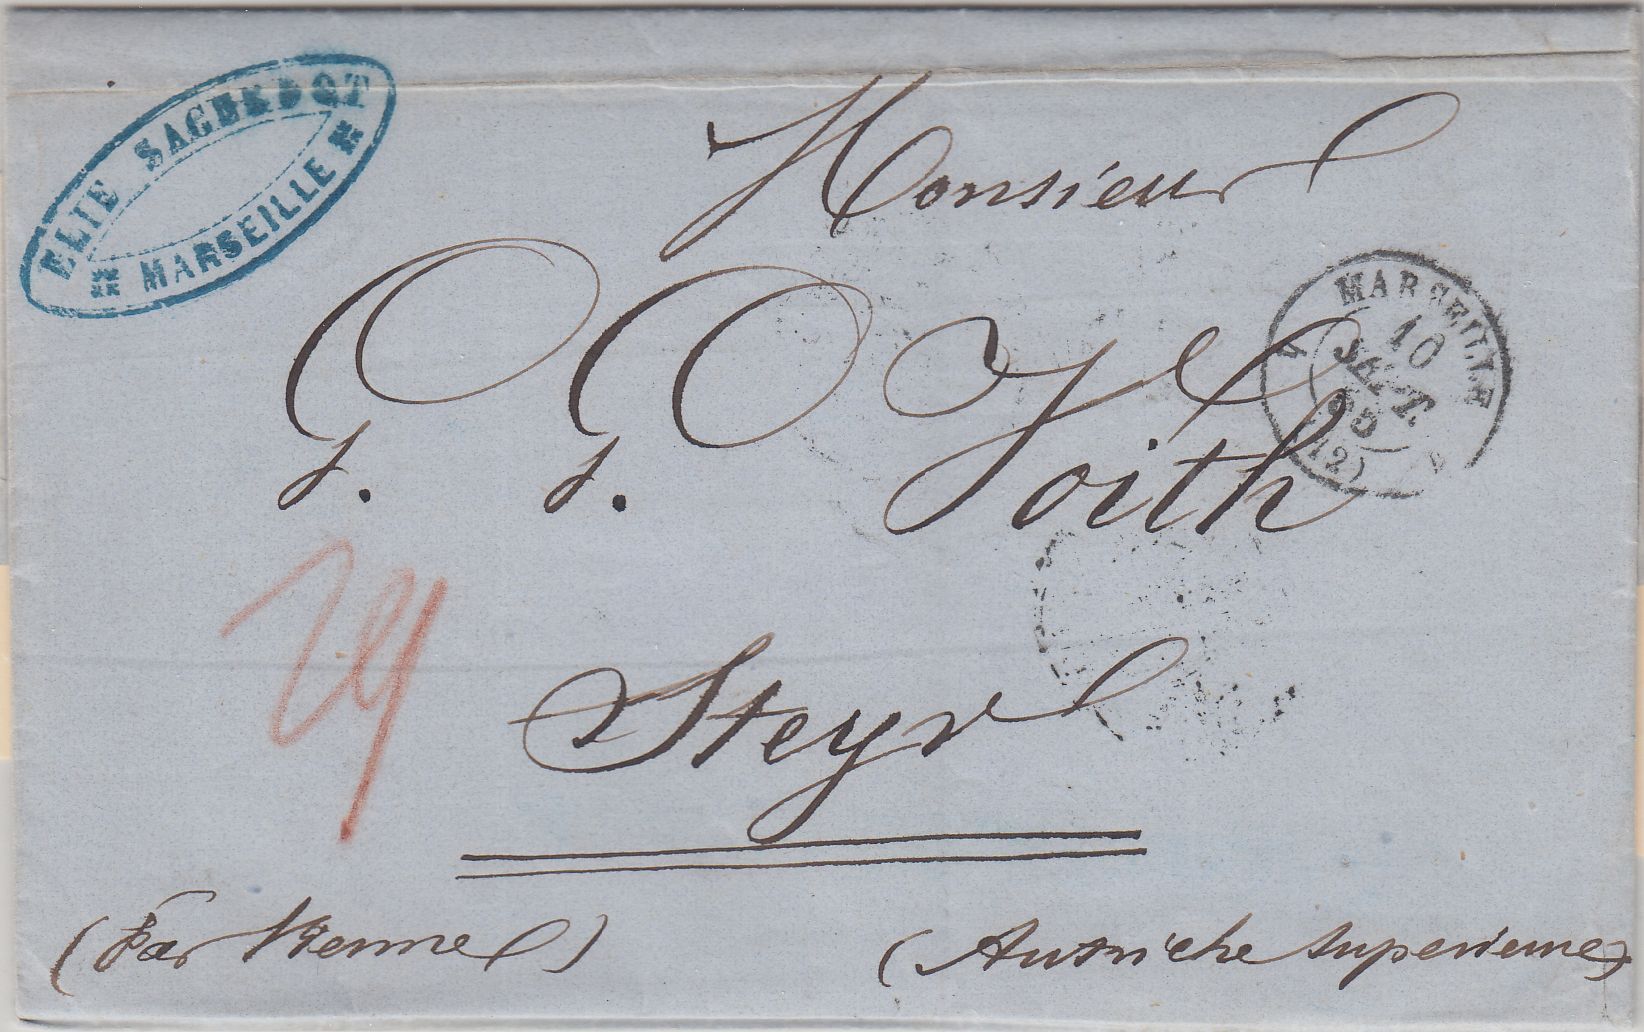 ELIE SACERDOT
MARSEILLE
Monsieur
G. G. Voith
MARSEILLE
10
SEPT.
65
(12)
Steyr
(Par Vienne)
(Autriche supérieure)